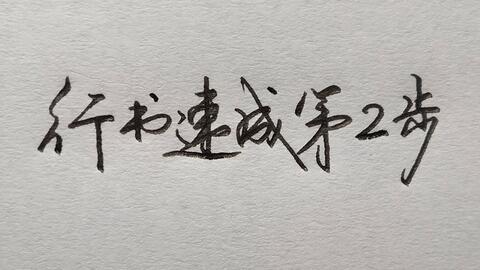 行书速成第2步